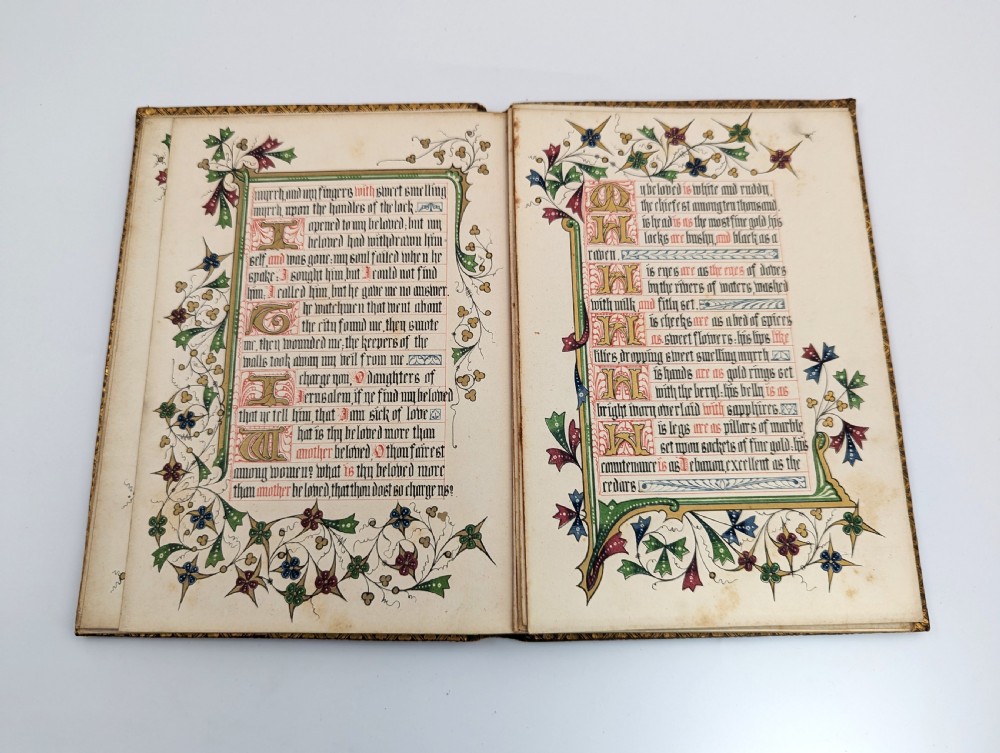 myrrh and my fingers with sweet smelling
myrrh upon the handles of the lock
I opened to my beloved; but my
beloved had withdrawn him
self and was gone: my soul failed when he
spake: I sought him but I could not find
him; I called him, but he gave me no answer.
The watchmen that went about
the city found me, they smote
me, they wounded me; the keepers of the
walls took away my veil from me
I charge you, O daughters of
Jerusalem, if ye find my beloved
that ye tell him that I am sick of love
What is thy beloved more than
another beloved, O thou fairest
among women? what is thy beloved more
than another beloved, that thou dost so charge us?
My beloved is white and ruddy,
the chiefest among ten thousand.
His head is as the most fine gold his
locks are bushy and black as a
raven
His eyes are as the eyes of doves
by the rivers of waters, washed
with milk and fitly set.
His cheeks are as a bed of spices
as sweet flowers: his lips like
lilies dropping sweet smelling myrrh
His hands are as gold rings set
with the beryl: his belly is as
bright ivory overlaid with sapphires.
His legs are as pillars of marble
set upon sockets of fine gold: his
countenance is as Lebanon, excellent as the
cedars